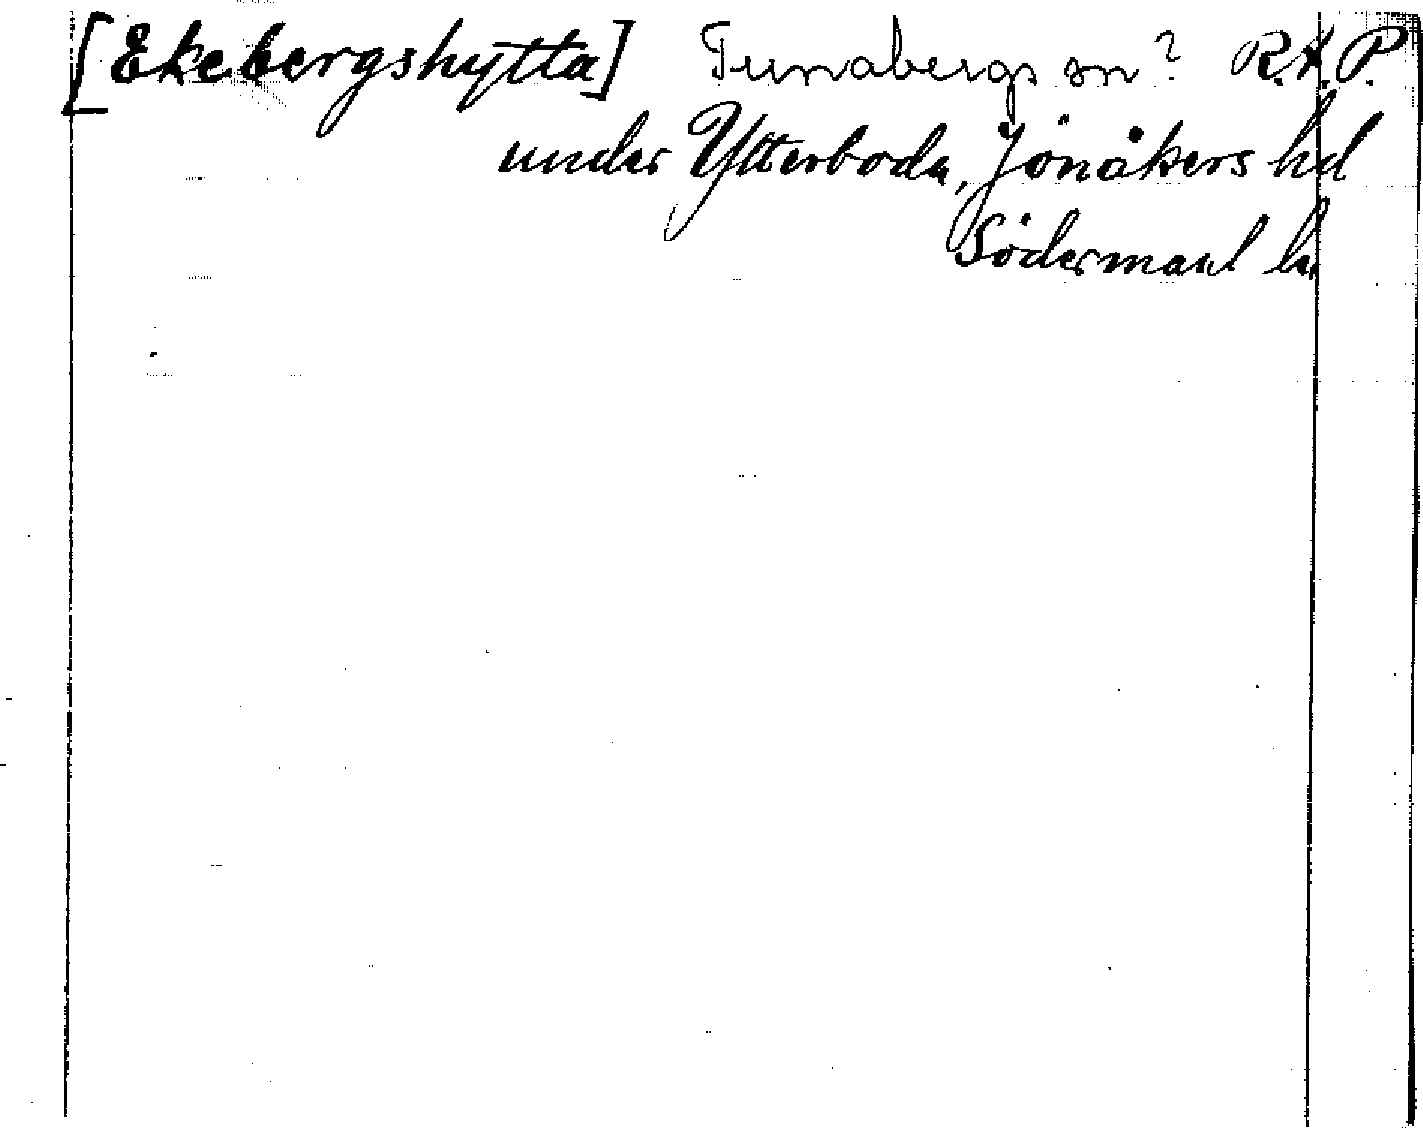 [Ekebergshytta] Tunabergs sn? R.A.P.
under Ytterboda, Jönåkers hd
Södermanl. län